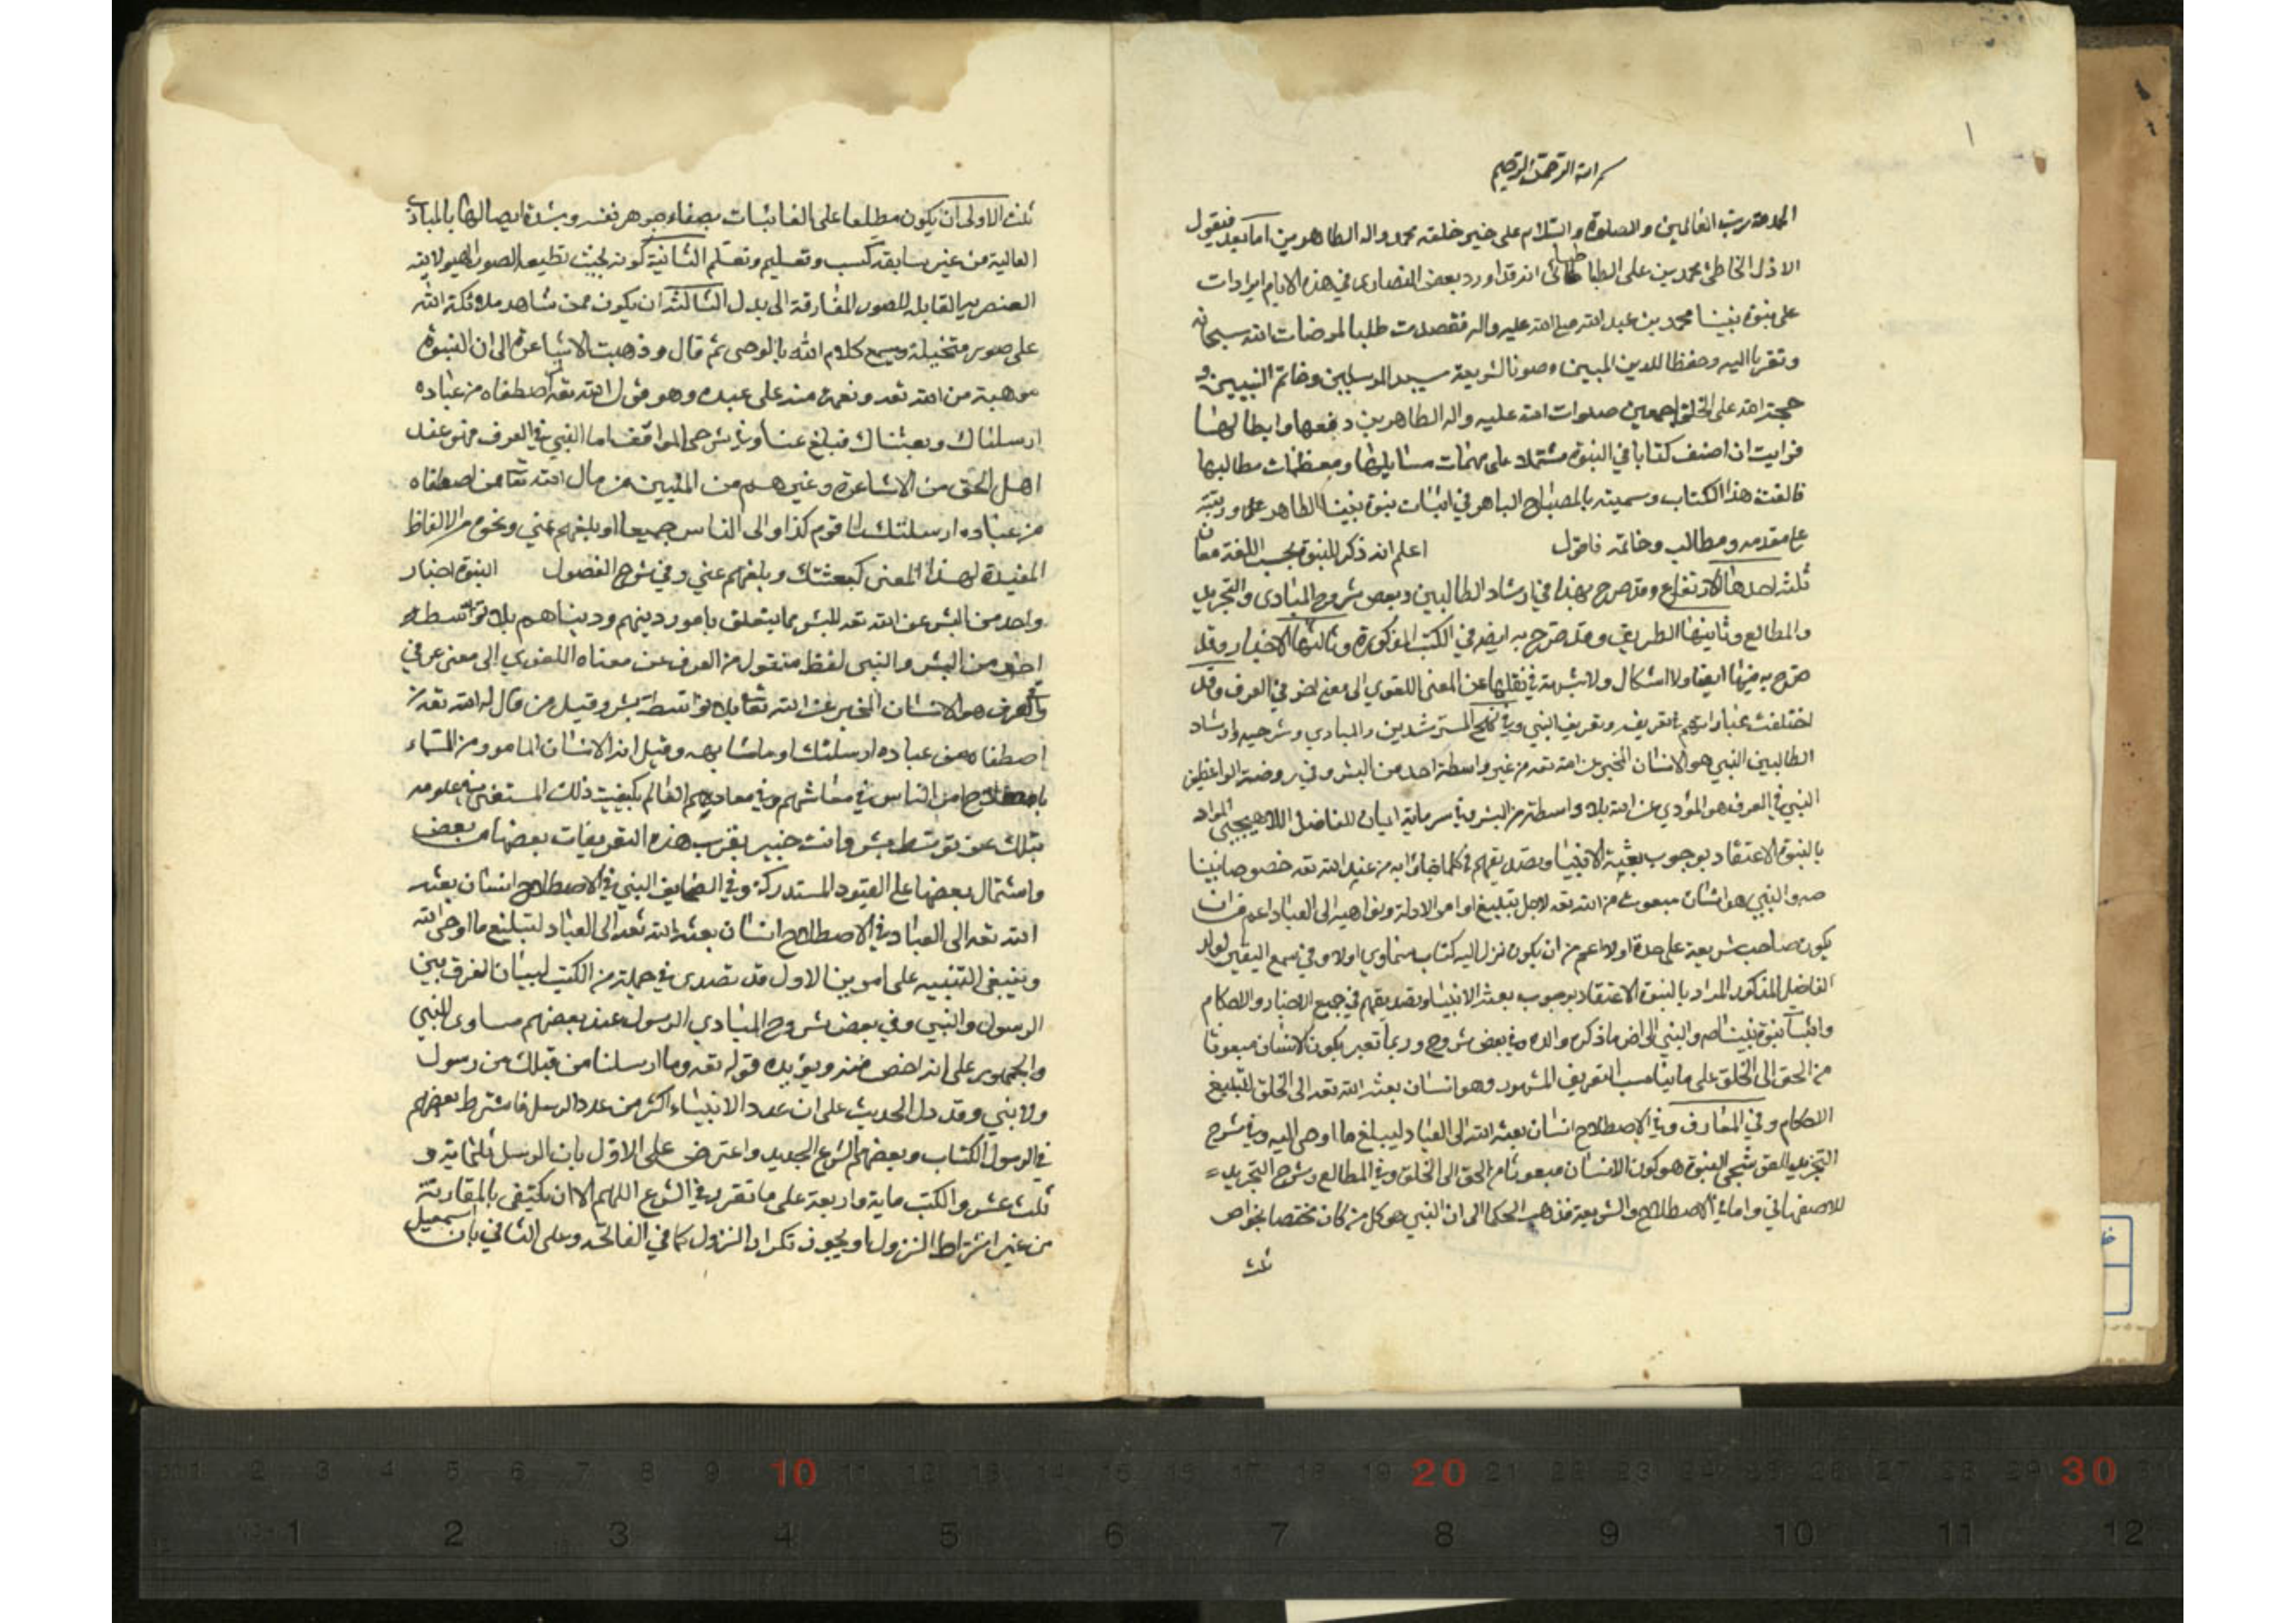 ١
بسم الله الرحمن الرحيم
الحمد لله رب العالمين والصلوة والسلام على خير خلقه محمد واله الطاهرين اما بعد فيقول
الاذل الخاطئ محمد بن على الطباطبائى انه قد اورد بعض النصارى في هذه الايام ايرادات
على نبوة نبينا محمد بن عبد الله صلى الله عليه واله فقصدت طلبا لمرضات الله سبحانه
وتقربا اليه وحفظا للدين المبين وصونا لشريعة سيد المرسلين وخاتم النبيين و
حجة الله على الخلق اجمعين صلوات الله عليه واله الطاهرين دفعها وابطالها
فرايت ان اصنف كتابا في النبوة مشتملا على مهمات مسايلها ومعظمات مطالبها
فالفت هذا الكتاب وسميته بالمصباح الباهر في اثبات نبوة نبينا الطاهر ورتبته
على مقدمه ومطالب وخاتمه فاقول اعلم انه ذكر للنبوة بحسب اللغة معان
ثلثه احدها الارتفاع وقد صرح بهذا في ارشاد الطالبين وبعض شروح المبادى والتجريد
والمطالع وثانيها الطريق وقد صرح به ايضا في الكتب المذكورة وثالثها الاخبار وقد
صرح به فيها ايضا ولا اشكال ولا شبهة في نقلها عن المعنى اللغوي الى معنى اخر في العرف وقد
اختلفت عباراتهم في تعريفه وتعريف النبي وفي نهج المسترشدين والمبادي وشرحيه وارشاد
الطالبين النبي هو الانسان المخبر عن الله تعه من غير واسطة احد من البشر وفي روضة الواعظين
النبي في العرف هو المؤدي عن الله بلا واسطة من البشر وفي سرماية ايمان للفاضل اللاهيجي المراد
بالنبوة الاعتقاد بوجوب بعثة الانبياء وتصديقهم في كلما جاؤا به من عند الله تعه خصوصا نبينا
صه والنبي هو انسان مبعوث من الله تعه لاجل تبليغ اوامر الاله ونواهيه الى العباد اعم من ان
يكون صاحب شريعة على حدة اولا اعم من ان يكون نزل اليه كتاب سماوي اولا وفي شمع اليقين لولد
الفاضل المذكور المراد بالنبوة الاعتقاد بوجوب بعثة الانبياء وتصديقهم في جميع الاخبار والاحكام
واثبات نبوة نبينا صه والنبي الى اخر ما ذكره والده وفي بعض شروح وربما تعبر بكون الانسان مبعوثا
من الحق الى الخلق على ما يناسب التعريف المشهور وهو انسان بعثه الله تعه الى الخلق لتبليغ
الاحكام وفي المعارف وفي الاصطلاح انسان بعثه الله الى العباد ليبلغ ما اوحى اليه وفي شرح
التجريد للقوشجي النبوة هو كون الانسان مبعوثا من الحق الى الخلق وفي المطالع وشرح التجريد =
للاصفهاني واما في الاصطلاح والشريعة فذهب الحكماء الى ان النبي هو كل من كان مختصا بخواص
ثلث
ثلث الاولى ان يكون مطلعا على الغائبات بصفاء جوهر نفسه وبشدة ايصالها بالمبادى
العالية من غير سابقة كسب وتعليم وتعلم الثانية كونه بحيث تطيعه الصور الهيولانية
العنصرية القابلة للصور المفارقة الى بدل الثالثة ان يكون ممن شاهد ملائكة الله
على صور متخيلة ويسمع كلام الله بالوحى ثم قال وذهبت الاشاعرة الى ان النبوة
موهبة من الله تعه ونعمة منه على عبده وهو قول الله تعه لمن اصطفاه من عباده
ارسلناك وبعثناك فبلغ عنا وفي شرحى المواقف اما النبي في العرف فهو عند
اهل الحق من الاشاعرة وغيرهم من المليين من قال الله تعا ممن اصطفاه
من عباده ارسلتك الى قوم كذا والى الناس جميعا او بلغهم عني ونحوه من الالفاظ
المفيدة لهذا المعنى كبعثتك وبلغهم عني وفي شرح الفصول النبوة اخبار
واحد من البشر عن الله تعه للبشر بما يتعلق بامور دينهم ودنياهم بلا توسط
احد من البشر والنبى لفظ منقول من العرف عن معناه اللغوي الى معنى عرفي
وفي العرف هو الانسان المخبر عن الله تعا بلا واسطة بشر وقيل من قال له الله تعه ممن
اصطفاه من عباده ارسلتك او ما شابهه وقيل انه الانسان المامور من السماء
باصلاح الناس في معاشهم وفي معادهم العالم بكيفيت ذلك المستغنى في علومه
بتلك عن توسط بشر وانت خبير بقرب هذه التعريفات بعضها من بعض
واشتمال بعضها على القيود المستدركة وفي الاصطلاح انسان بعثه
الله تعه الى العباد في الاصطلاح انسان بعثه الله تعه الى العباد لتبليغ ما اوحى الله
وينبغى التنبيه على امورين الاول قد تصدى في جملة من الكتب لبيان الفرق بين
الرسول والنبي وفي بعض شروح المبادي الرسول عند بعضهم مساوى للنبي
والجمهور على انه اخص منه ويؤيده قوله تعه وما ارسلنا من قبلك من رسول
ولا نبي وقد دل الحديث على ان عدد الانبياء اكثر من عدد الرسل فاشترط بعضهم
في الرسول الكتاب وبعضهم الشرع الجديد واعترض على الاول بان الرسل ثلثماية و
ثلث عشر والكتب ماية واربعة على ما تقرر في الشرع اللهم الا ان يكتفى بالمقارنة
من غير اشتراط النزول او يجوز تكرار النزول كما في الفاتحه وعلى الثاني بان اسمعيل